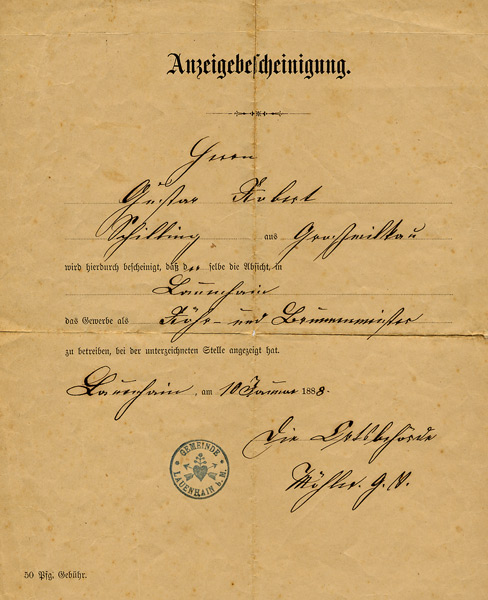 Anzeigebescheinigung.
Herrn
Gustav Robert
Schilling aus Grossmilkau
wird hierdurch bescheinigt, daß derselbe die Absicht, in
Lauenhain
das Gewerbe als Röhr- und Brunnenmeister
zu betreiben, bei der unterzeichneten Stelle angezeigt hat.
Lauenhain, am 10 Januar 1888.
Die Ortsbehörde
GEMEINDE
LAUENHAIN b. M.
G. V.
50 Pfg. Gebühr.